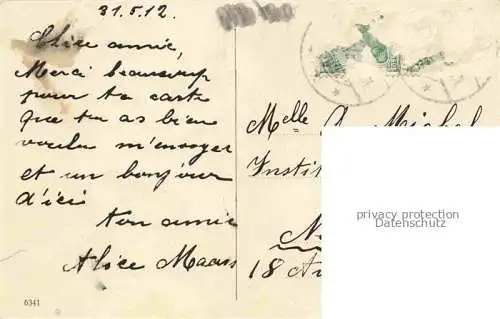 31.5.12.
Chère amie,
Merci beaucoup
pour ta carte
que tu as bien
voulu m'envoyer
et un bonjour
d'ici
ton amie
Alice Maars
Melle A. Michel
Instit
18 A
privacy protection
Datenschutz
6341